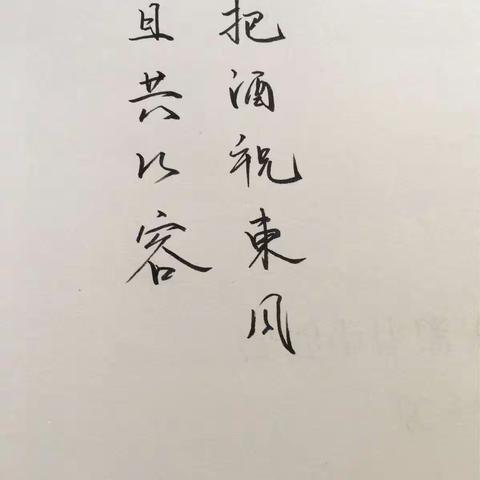 把酒祝東风
且共从容